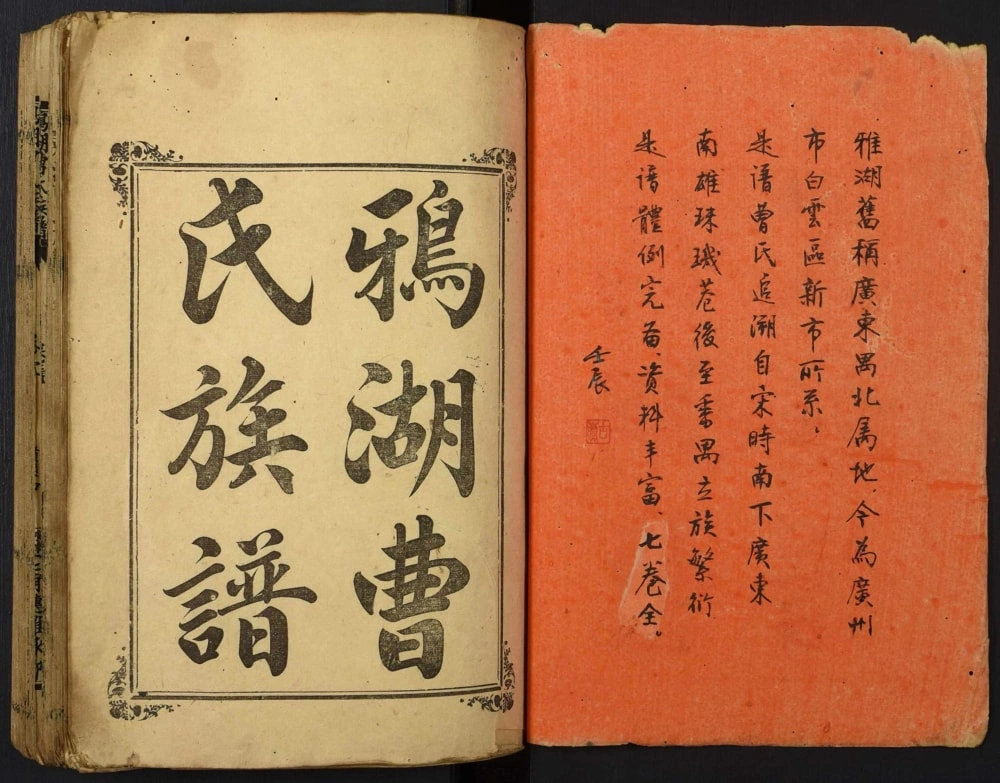 雅湖舊稱廣東禺北属地、今為廣州
市白雲區新市所系、
是譜曹氏追溯自宋時南下廣東
南雄珠璣巷後至番禺立族繁衍
是譜體例完备、資料丰富、七卷全。
壬辰
鴉湖曹
氏族譜